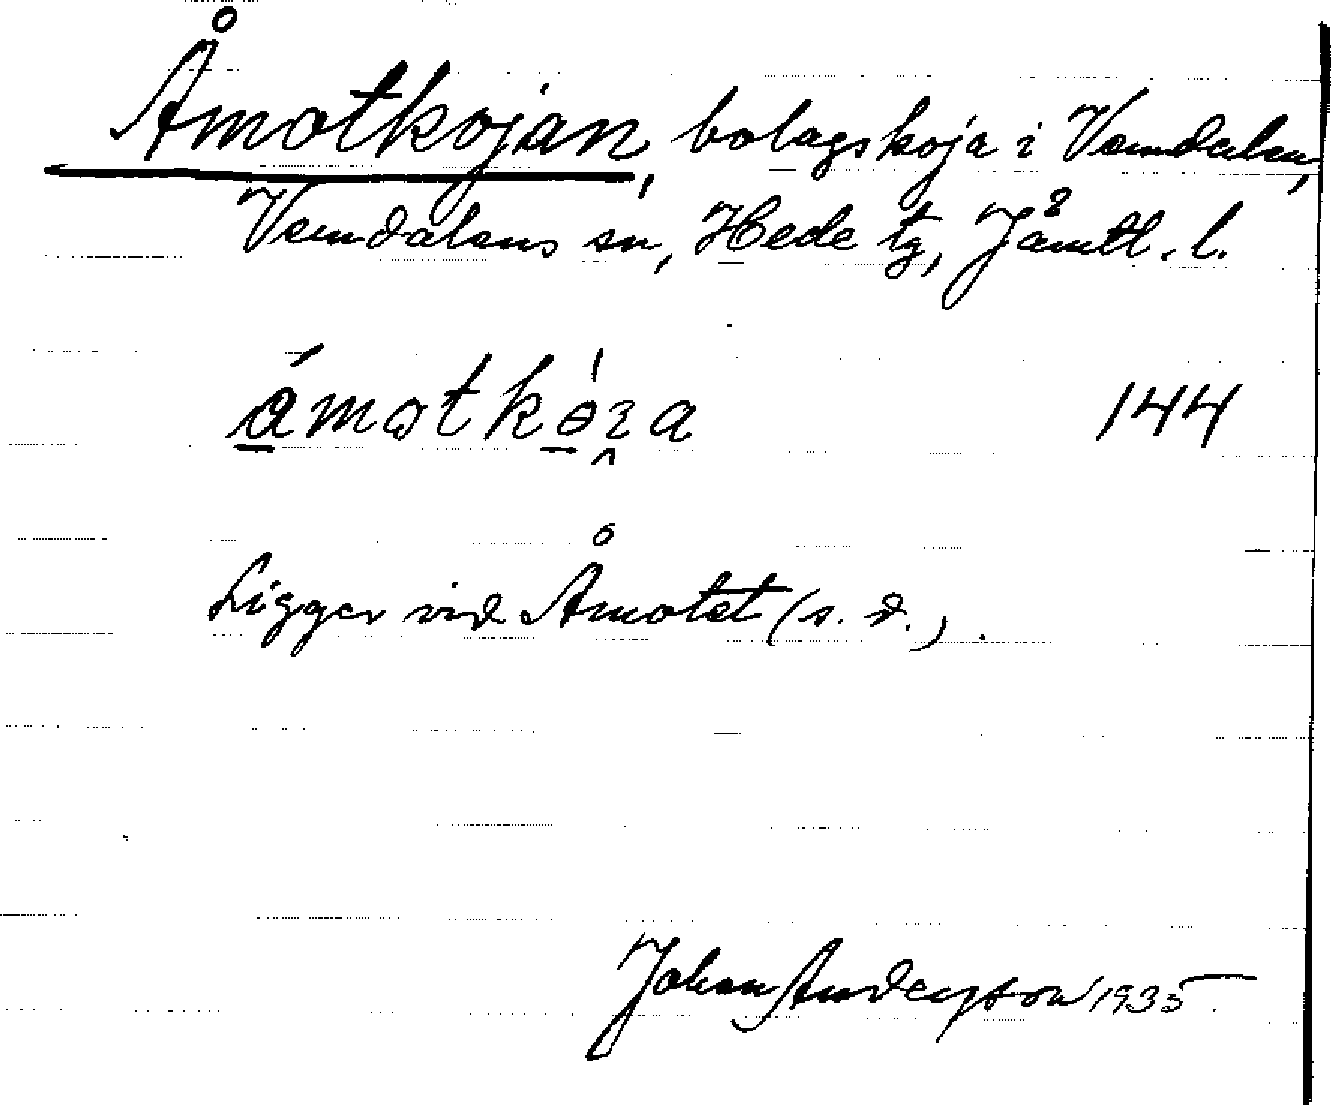 Åmotkojan, bolagskoja i Vemdalen,
Vemdalens sn, Hede tg, Jämtl. l.
144
Ligger vid Åmotet (s. d.).
Johan Anderson 1935